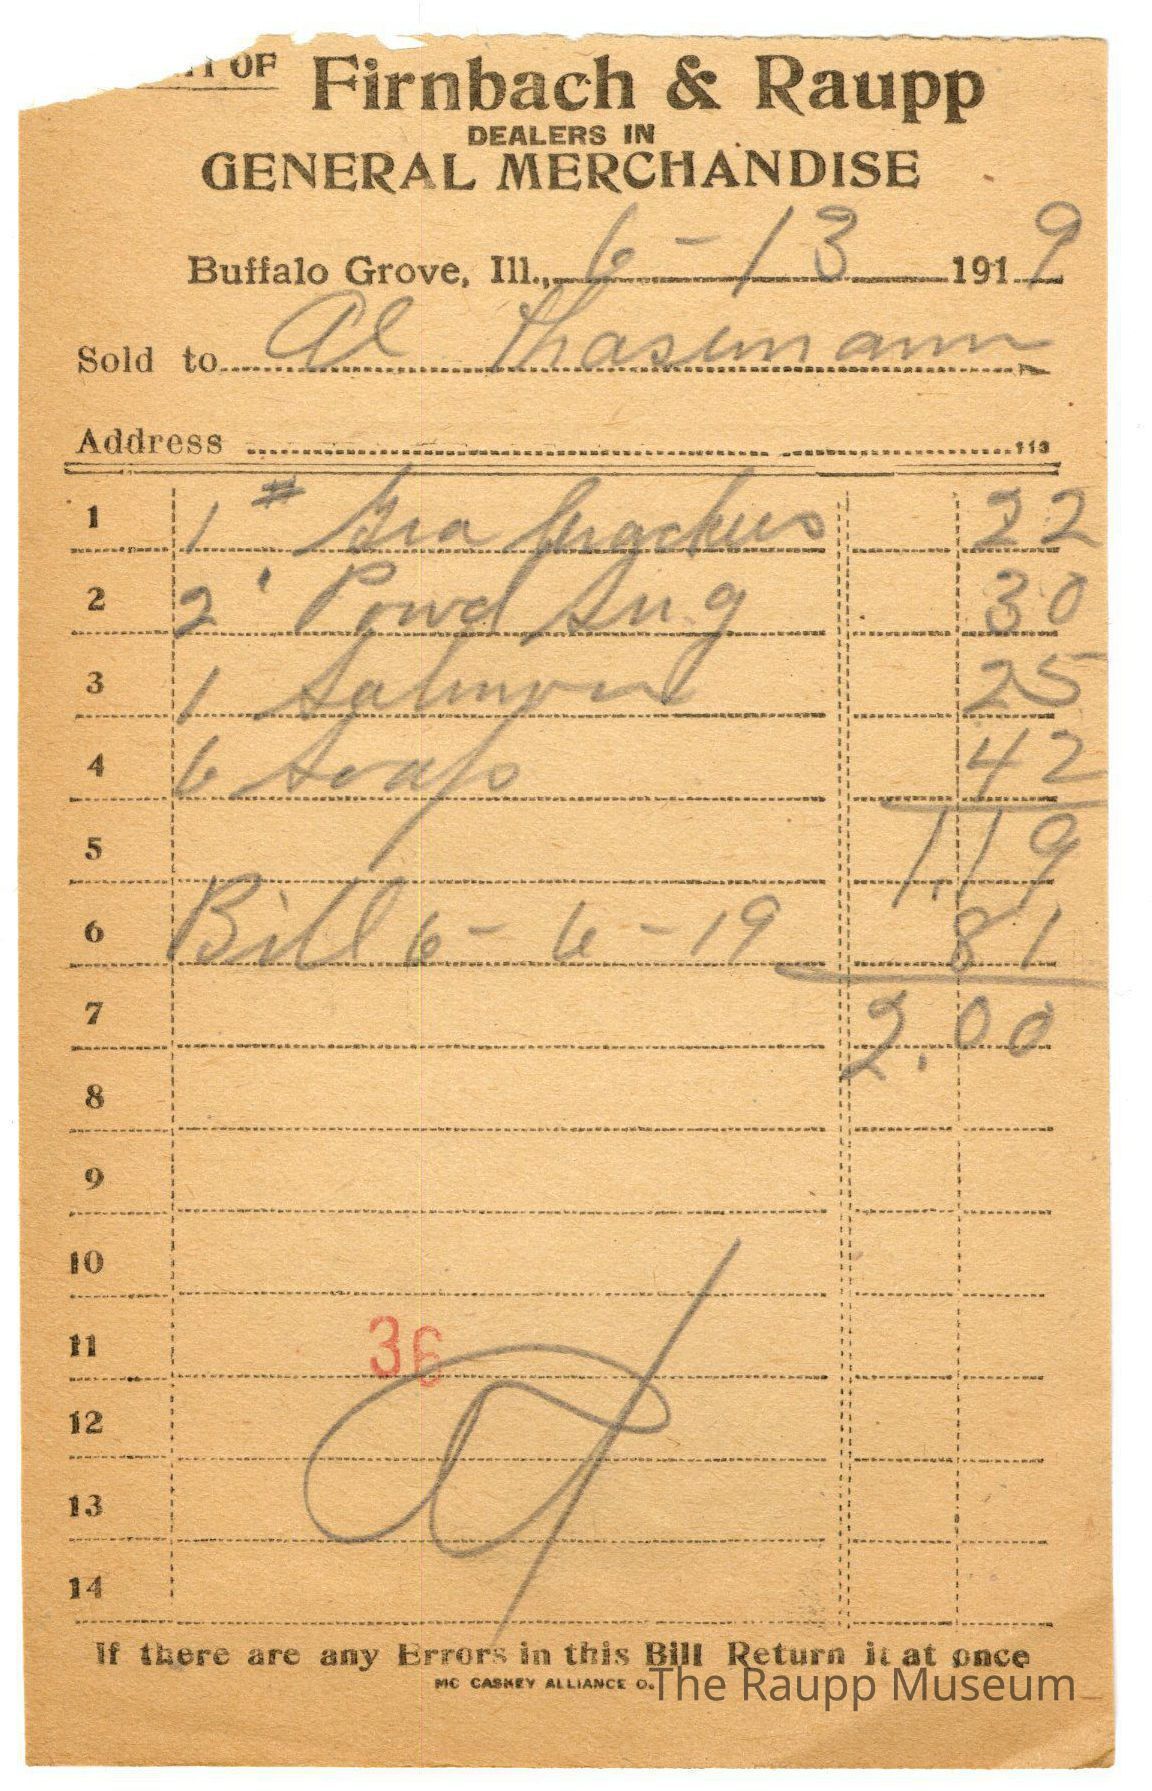 OF Firnbach & Raupp
DEALERS IN
GENERAL MERCHANDISE
Buffalo Grove, Ill., 6 - 13 1919
Sold to Al Thasemann
Address 113
1 1 # Gra Crackers 22
2 2 " Powd Sug 30
3 1 Salmon 25
4 6 Soap 42
5 1.19
6 Bill 6 - 6 - 19 81
7 2.00
8
9
10
11 36
12
13
14
If there are any Errors in this Bill Return it at once
MC CASKEY ALLIANCE O.
The Raupp Museum